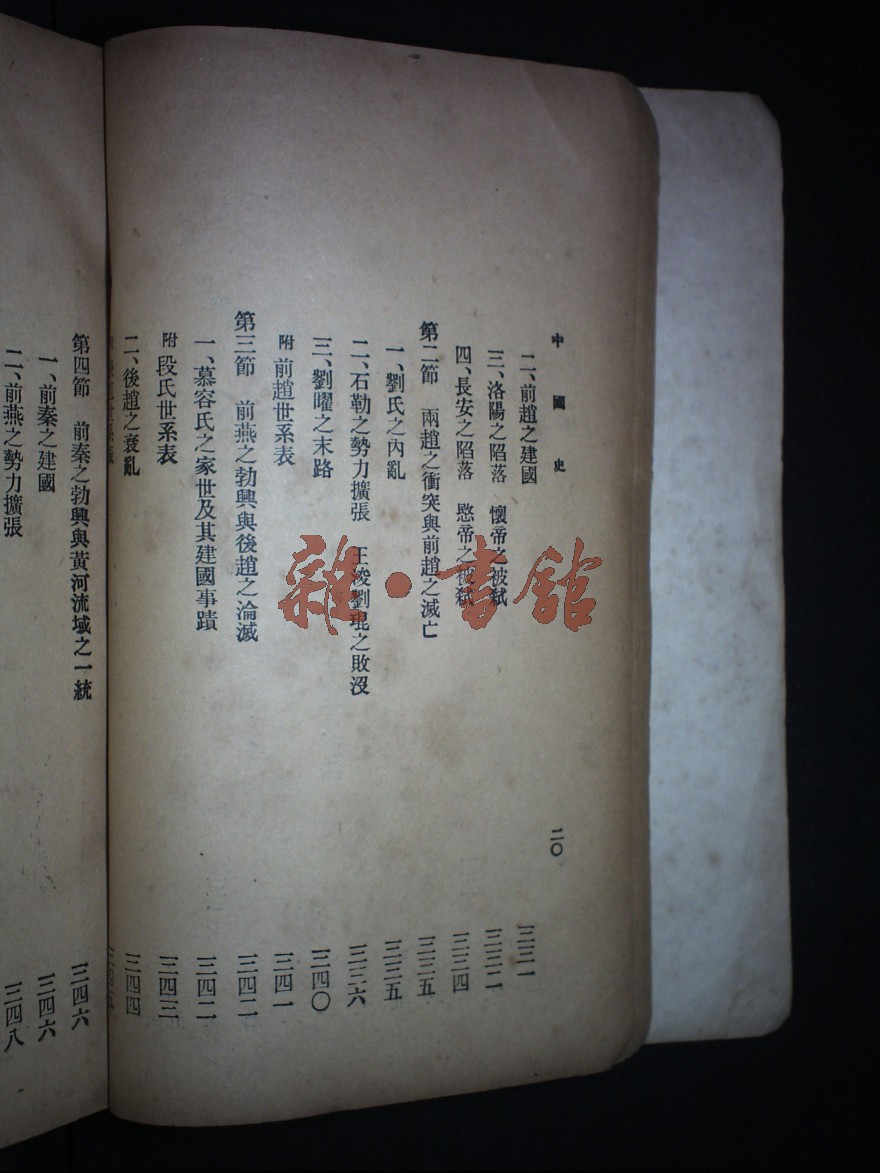 中國史
二〇
二、前趙之建國 三三一
三、洛陽之陷落 懷帝之被弑 三三二
四、長安之陷落 愍帝之被弑 三三四
第二節 兩趙之衝突與前趙之滅亡 三三五
一、劉氏之內亂 三三五
二、石勒之勢力擴張 王浚劉琨之敗沒 三三六
三、劉曜之末路 三四〇
附 前趙世系表 三四一
第三節 前燕之勃興與後趙之淪滅 三四二
一、慕容氏之家世及其建國事蹟 三四二
附 段氏世系表 三四三
二、後趙之衰亂 三四四
第四節 前秦之勃興與黃河流域之一統 三四六
一、前秦之建國 三四六
二、前燕之勢力擴張 三四八
雜·書館